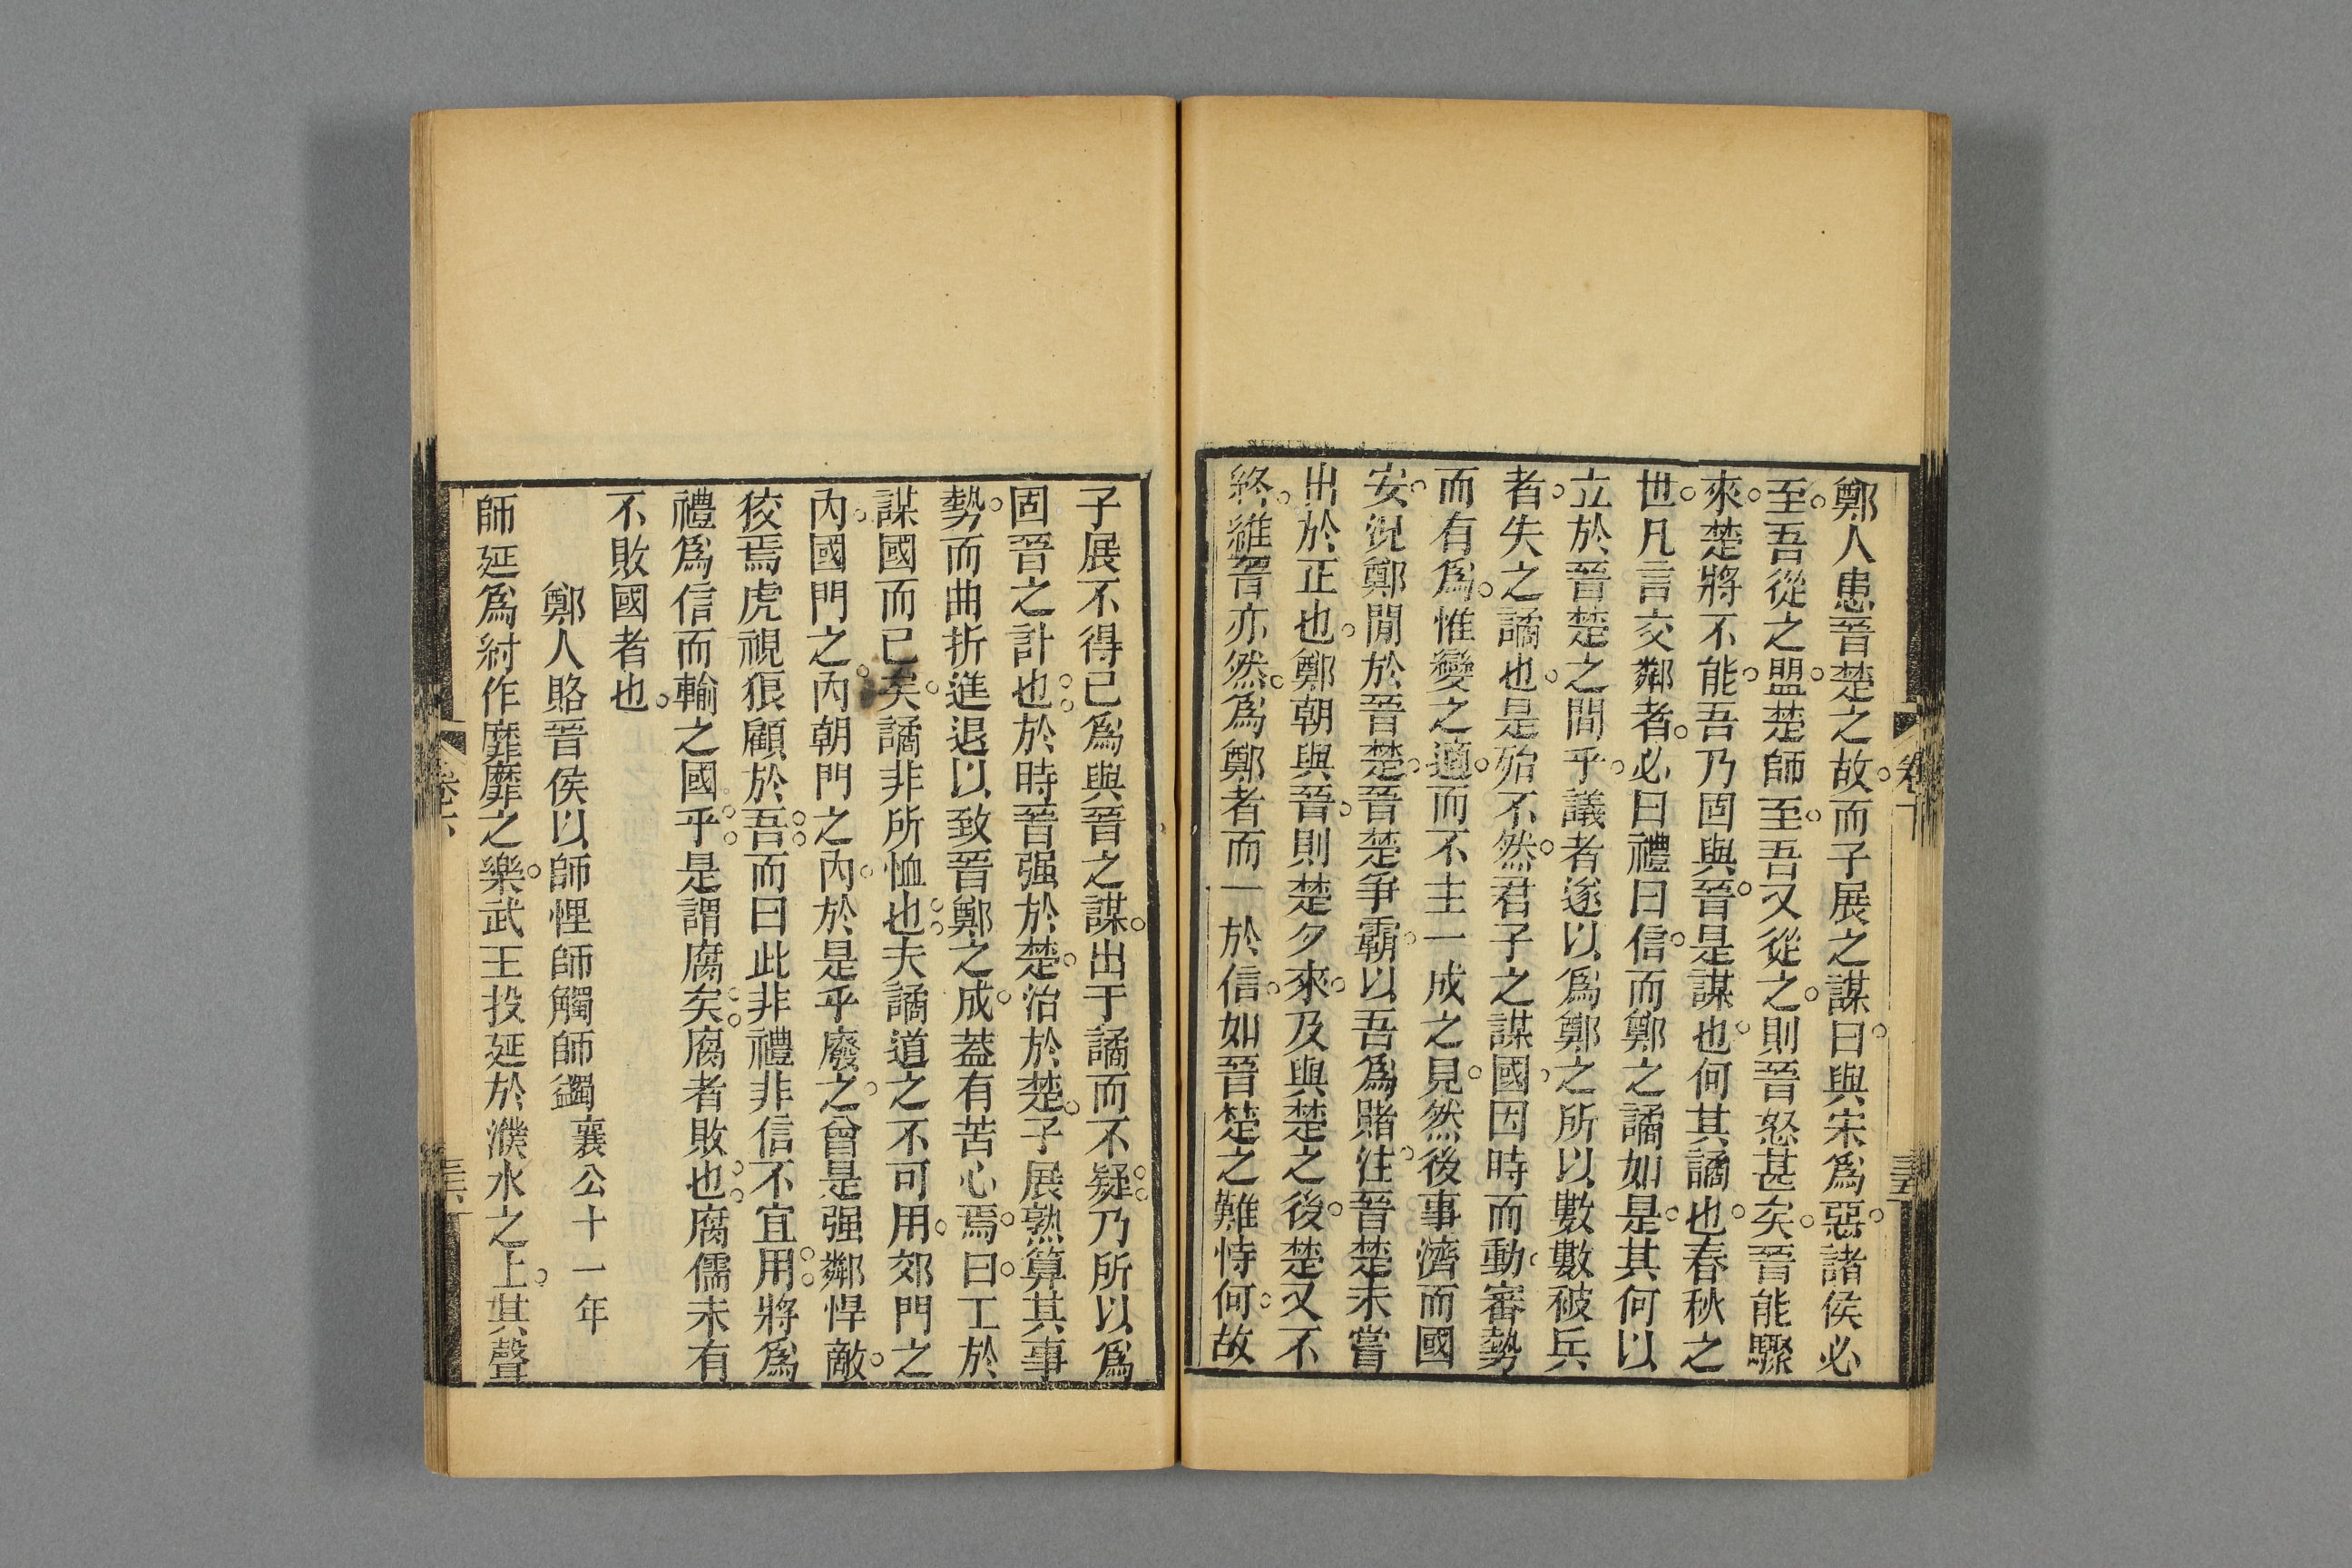 鄭人患晉楚之故而子展之謀曰與宋爲惡諸侯必
至吾從之盟楚師至吾又從之則晉怒甚矣晉能驟
來楚將不能吾乃固與晉是謀也何其譎也春秋之
世凡言交鄰者必曰禮曰信而鄭之譎如是其何以
立於晉楚之間乎議者遂以爲鄭之所以數數破兵
者失之譎也是殆不然君子之謀國因時而動審勢
而有爲惟變之適而不主一成之見然後事濟而國
安況鄭閒於晉楚晉楚爭霸以吾爲賭注晉楚未嘗
出於正也鄭朝與晉則楚夕來及與楚之後楚又不
終維晉亦然爲鄭者而一於信如晉楚之難恃何故
子展不得已爲與晉之謀出于譎而不疑乃所以爲
固晉之計也於時晉强於楚治於楚子展熟算其事
勢而曲折進退以致晉鄭之成蓋有苦心焉曰工於
謀國而已矣譎非所恤也夫譎道之不可用郊門之
內國門之內朝門之內於是乎廢之曾是强鄰悍敵
狡焉虎視狠顧於吾而曰此非禮非信不宜用將爲
禮爲信而輸之國乎是謂腐矣腐者敗也腐儒未有
不敗國者也
鄭人賂晉侯以師悝師觸師蠲襄公十一年
師延爲紂作靡靡之樂武王投延於濮水之上其聲